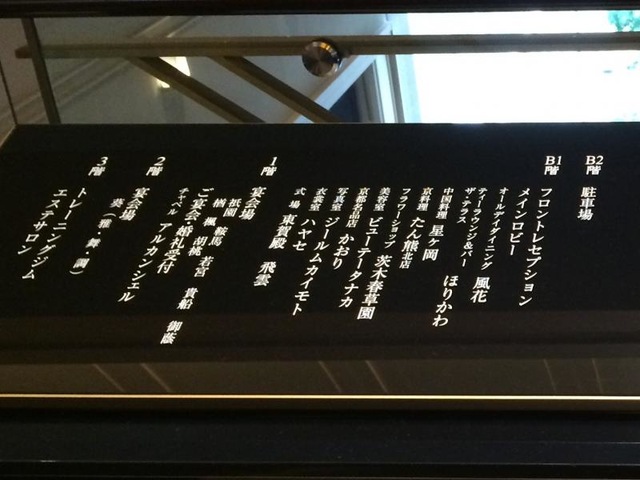 B2階 駐車場
B1階 フロントレセプション
メインロビー
オールデイダイニング
ティーラウンジ&バー 風花
ザ・テラス ほりかわ
中国料理 星ヶ岡
京料理 たん熊北店
フラワーショップ 茨木春草園
美容室 ビューテータナカ
京都名品店 かおり
写真室 ジールムカイモト
衣裳室 ハヤセ
式場 東賀殿 飛雲
1階 宴会場
祇園 鞍馬 若宮 貴船 御蔭
楢 楓 胡桃
ご宴会・婚礼受付
チャペル アルカンシェル
2階 宴会場
葵(雅・舞・調)
3階 トレーニングジム
エステサロン